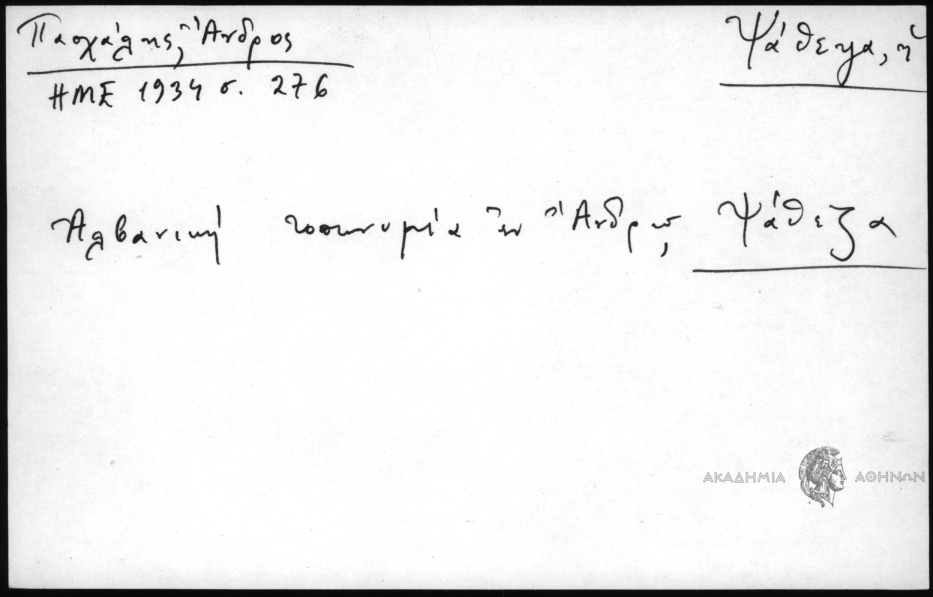 Πασχάλης, Ἄνδρος
Ψάθεζα, ἡ
ΗΜΕ 1934 σ. 276
Ἀλβανική τοπωνυμία ἐν Ἄνδρῳ, Ψάθεζα
ΑΚΑΔΗΜΙΑ ΑΘΗΝΩΝ